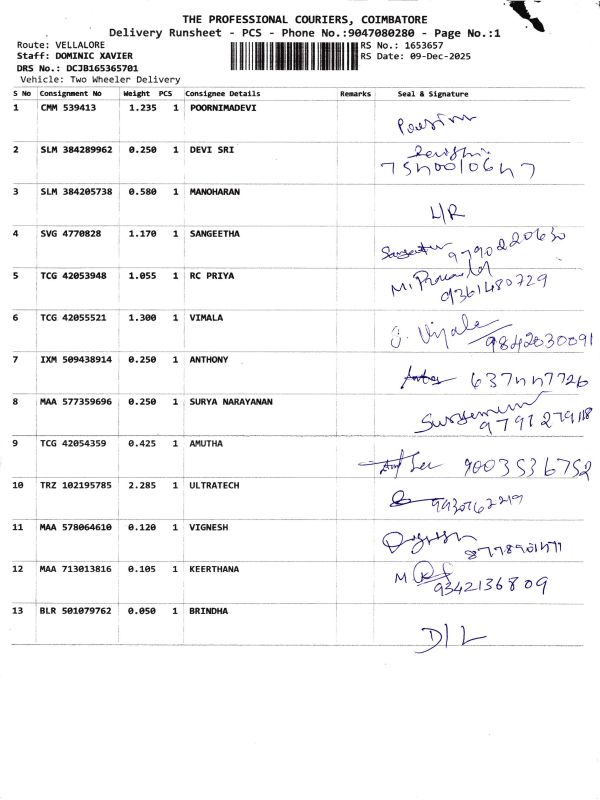 THE PROFESSIONAL COURIERS, COIMBATORE
Delivery Runsheet - PCS - Phone No.:9047080280 - Page No.:1
Route: VELLALORE RS No.: 1653657
Staff: DOMINIC XAVIER RS Date: 09-Dec-2025
DRS No.: DCJB165365701
Vehicle: Two Wheeler Delivery
S No Consignment No Weight PCS Consignee Details Remarks Seal & Signature
1 CMM 539413 1.235 1 POORNIMADEVI
2 SLM 384289962 0.250 1 DEVI SRI
3 SLM 384205738 0.580 1 MANOHARAN
4 SVG 4770828 1.170 1 SANGEETHA 9790220630
5 TCG 42053948 1.055 1 RC PRIYA
9361480729
6 TCG 42055521 1.300 1 VIMALA J. Vimala
9842030091
7 IXM 509438914 0.250 1 ANTHONY
8 MAA 577359696 0.250 1 SURYA NARAYANAN
9 TCG 42054359 0.425 1 AMUTHA 9003536752
10 TRZ 102195785 2.285 1 ULTRATECH
11 MAA 578064610 0.120 1 VIGNESH
12 MAA 713013816 0.105 1 KEERTHANA
9342136809
13 BLR 501079762 0.050 1 BRINDHA
D/L